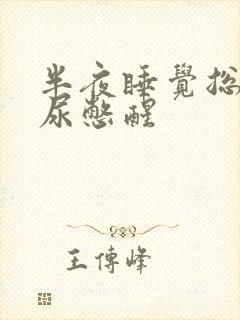 半夜睡覺總
尿憋醒
王傳峰